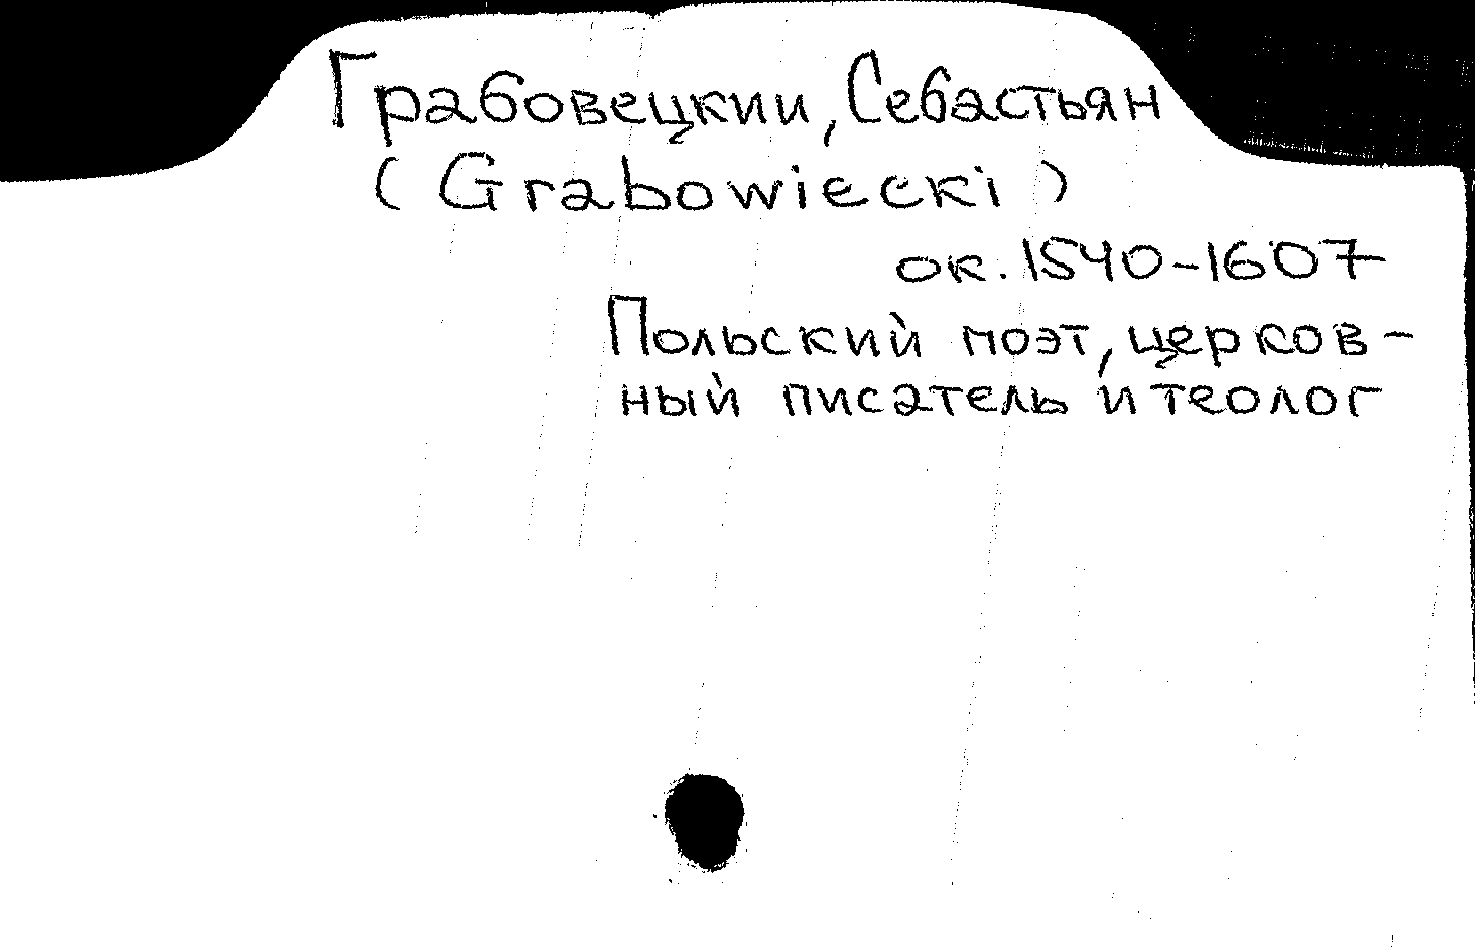 Грабовецкии, Себастьян
(Grabowiecki)
ок. 1540-1607
Польский поэт, церков-
ный писатель и теолог